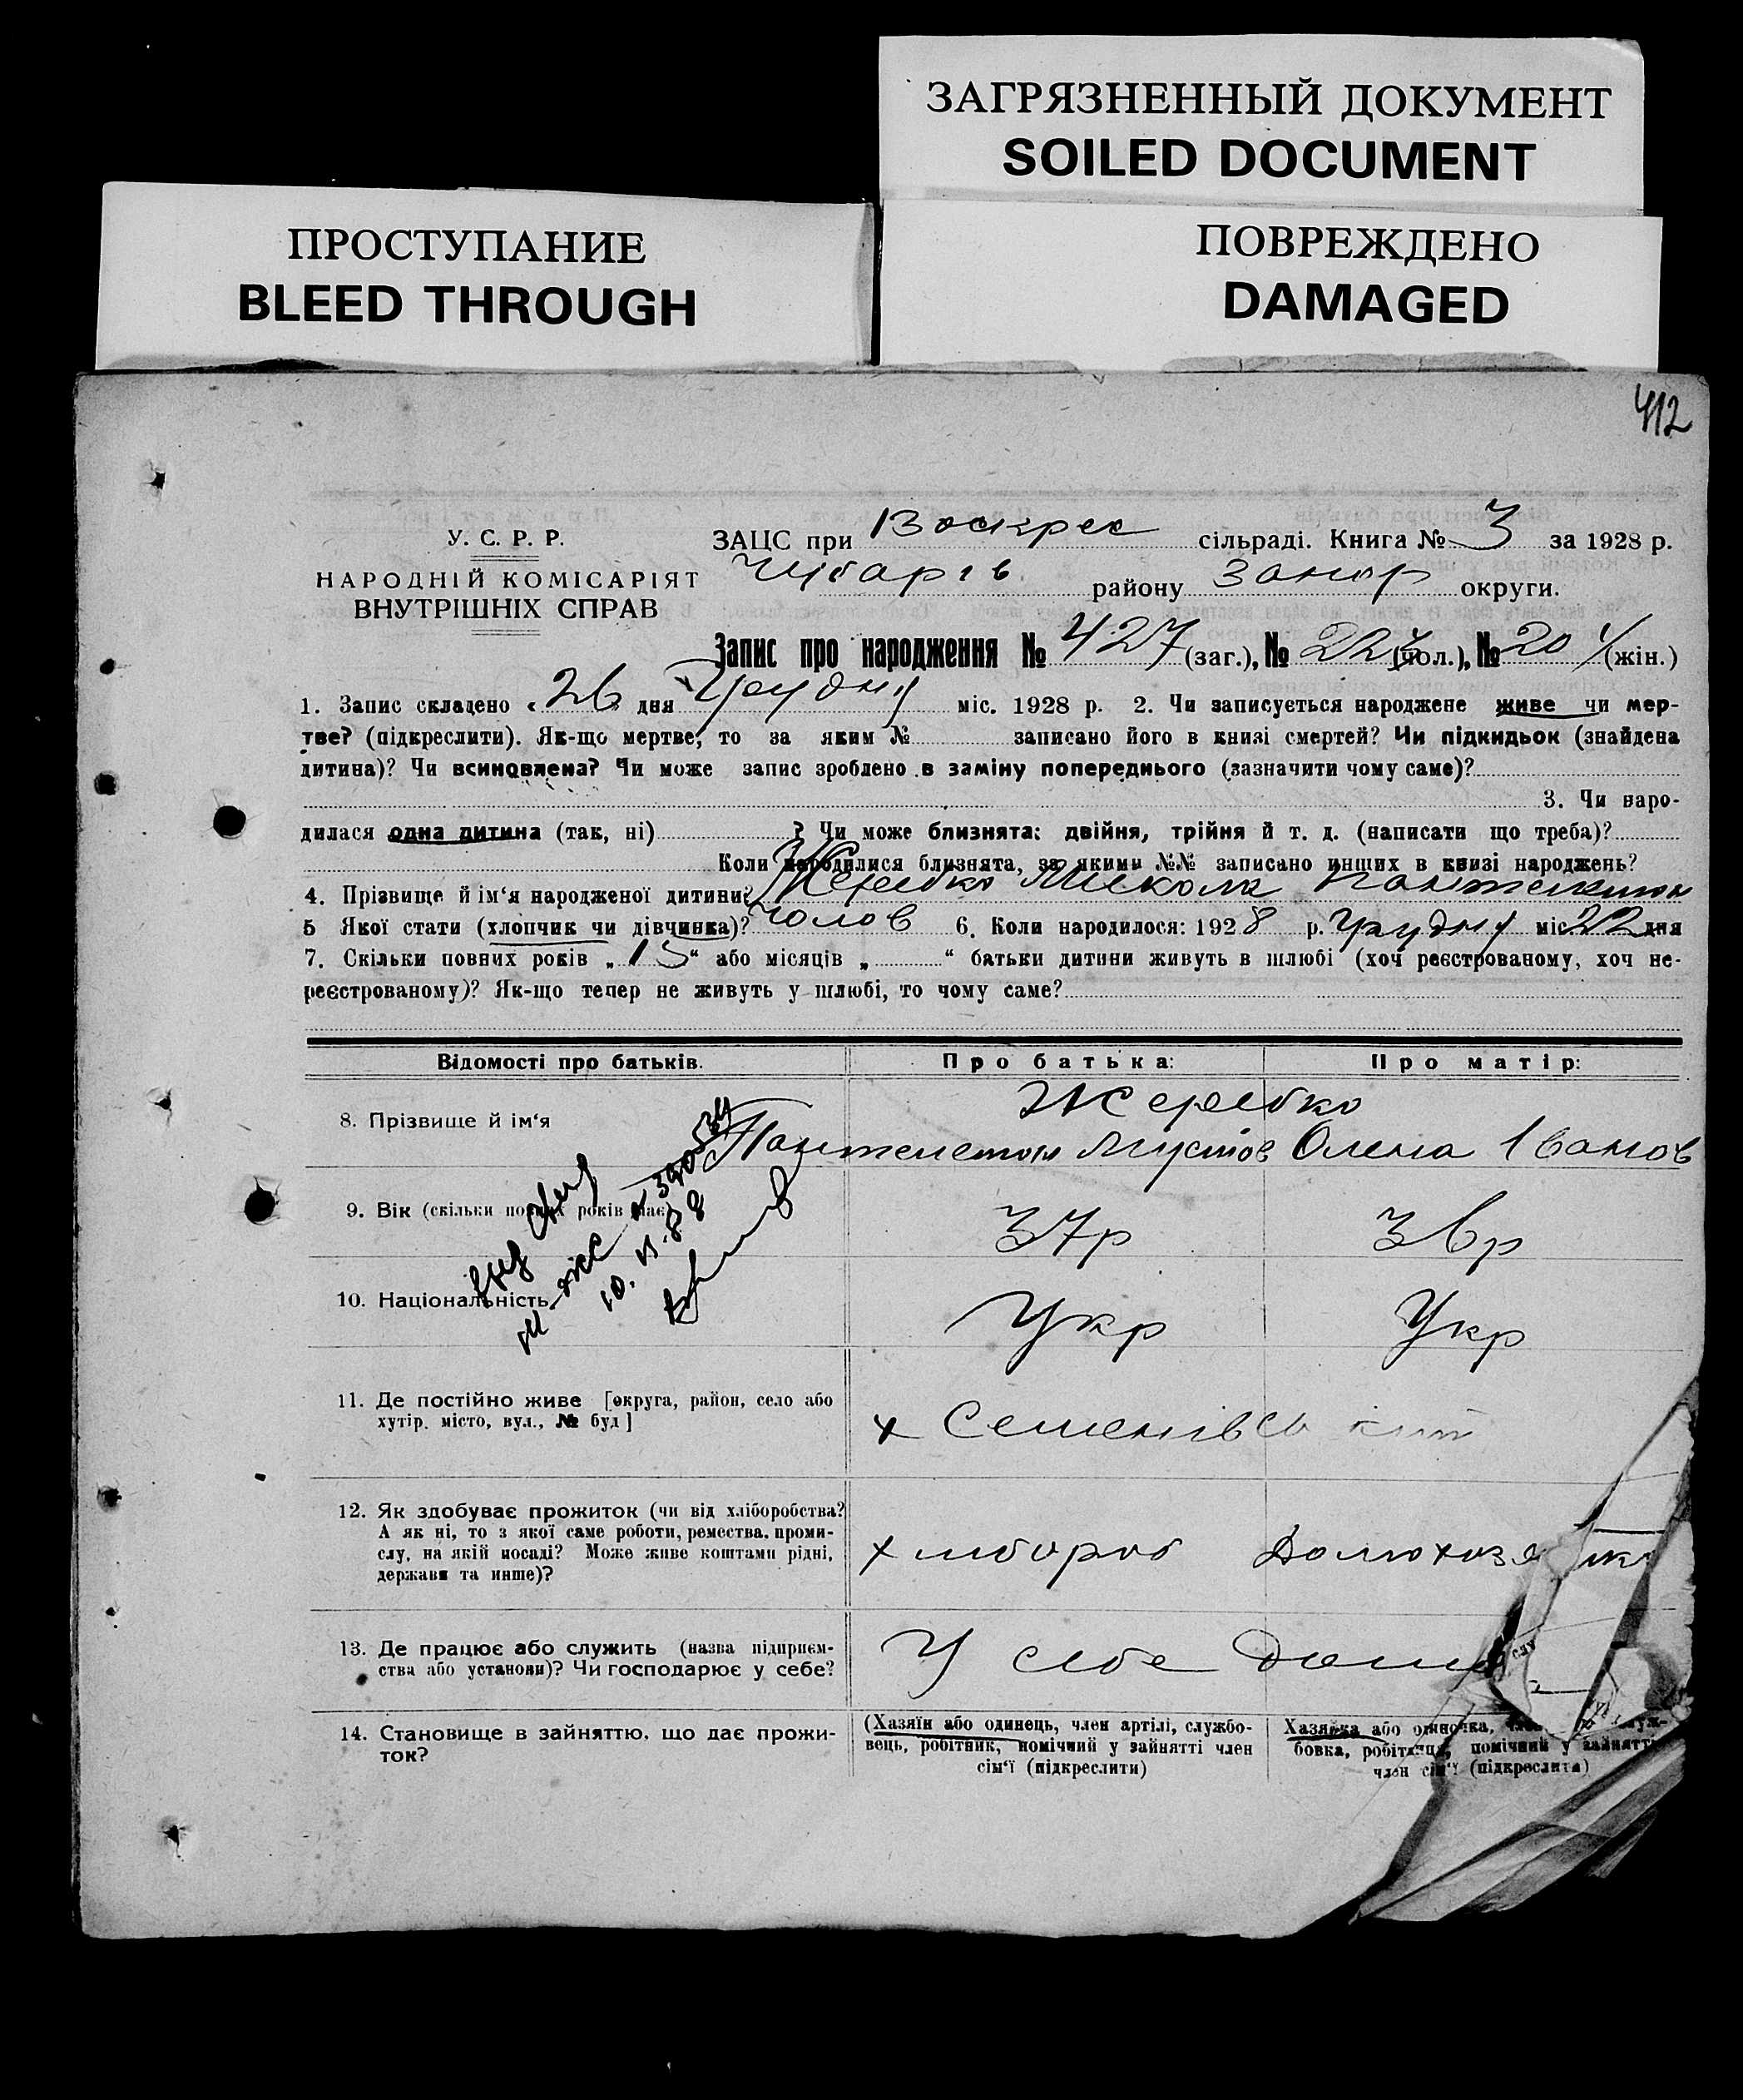 ЗАГРЯЗНЕННЫЙ ДОКУМЕНТ
SOILED DOCUMENT
ПРОСТУПАНИЕ
BLEED THROUGH
ПОВРЕЖДЕНО
DAMAGED
412
У. С. Р. Р.
НАРОДНІЙ КОМІСАРІЯТ
ВНУТРІШНІХ СПРАВ
ЗАЦС при Воскрес сільраді. Книга № 3 за 1928 р.
Чубарів району Запор округи.
Запис про народження № 427 (заг.), № 223 (чол.), № 204 (жін.)
1. Запис складено « 26 » дня Грудня міс. 1928 р. 2. Чи записується народжене живе чи мер-
тве? (підкреслити). Як-що мертве, то за яким № записано його в книзі смертей? Чи підкидьок (знайдена
дитина)? Чи всиновлена? Чи може запис зроблено в заміну попереднього (зазначити чому саме)?
3. Чи наро-
дилася одна дитина (так, ні) ? Чи може близнята: двійня, трійня й т. д. (написати що треба)?
Коли народилися близнята, за якими №№ записано инших в книзі народжень?
4. Прізвище й ім'я народженої дитини? Жеребко Микола Пантелимон
5 Якої стати (хлопчик чи дівчинка)? чолов 6. Коли народилося: 1928 р. Грудня міс 22 дня
7. Скільки повних років „ 15 “ або місяців „ “ батьки дитини живуть в шлюбі (хоч реєстрованому, хоч не-
реєстрованому)? Як-що тепер не живуть у шлюбі, то чому саме?
Відомості про батьків. Про батька: Про матір:
8. Прізвище й ім'я Жеребко
Пантелемон Олена Іванов
9. Вік (скільки повних років має) 37р 36р
10. Національність Укр Укр
10. 11. 88
11. Де постійно живе [округа, район, село або
хутір, місто, вул., № буд]
х Семенівка
12. Як здобуває прожиток (чи від хліборобства?
А як ні, то з якої саме роботи, ремества, проми-
слу, на якій посаді? Може живе коштами рідні,
держави та инше)?
хлібороб Домохозя
13. Де працює або служить (назва підприєм-
ства або установи)? Чи господарює у себе?
У себе дома
14. Становище в зайняттю, що дає прожи-
ток?
(Хазяїн або одинець, член артілі, службо-
вець, робітник, помічний у зайнятті член
сім'ї (підкреслити)
Хазяйка або одиночка, служ-
бовка, робітниця, помічний у зайнятті
член сім'ї (підкреслити)